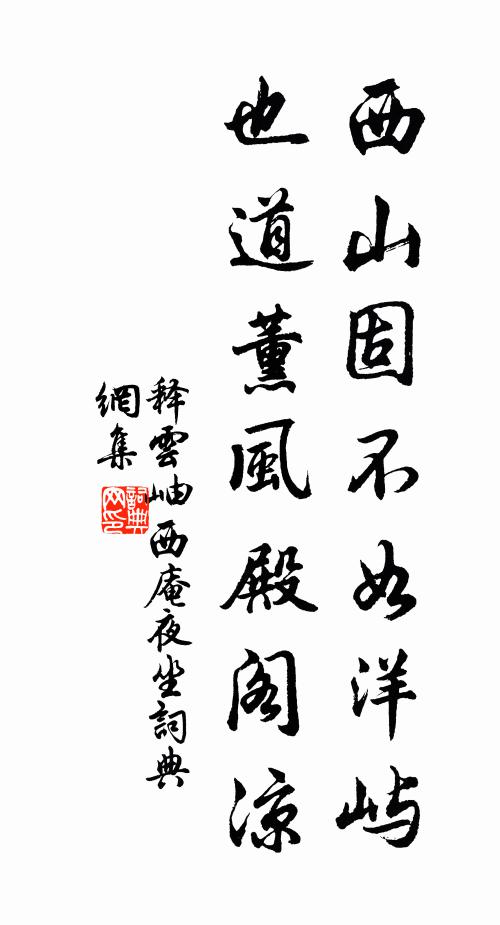 西山固不如洋屿
也道薰風殿阁凉
释雲岫西庵夜坐詞典
網集
詞典网印